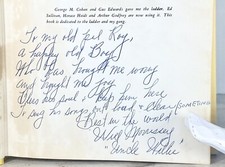 George M. Cohan and Gus Edwards gave me the ladder. Ed
Sullivan, Horace Heidt and Arthur Godfrey are now using it. This
book is dedicated to the ladder and my gang.
To my old pal Roy,
a happy old Boy
Who has brought me
And brought me Joy
soul, keep him here
To sing his songs for & clear
Best in the world
Will Morrissey
"Uncle Willie"